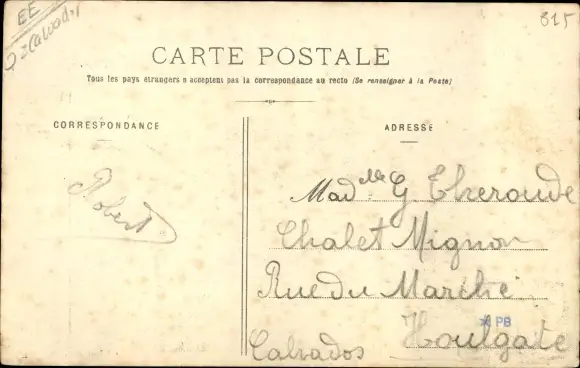 EE
Calvados
815
CARTE POSTALE
Tous les pays étrangers n'acceptent pas la correspondance au recto (Se renseigner à la Poste)
CORRESPONDANCE
Robert
ADRESSE
Madelle G Theroude
Chalet Mignon
Rue du Marché
Houlgate
PB
Calvados